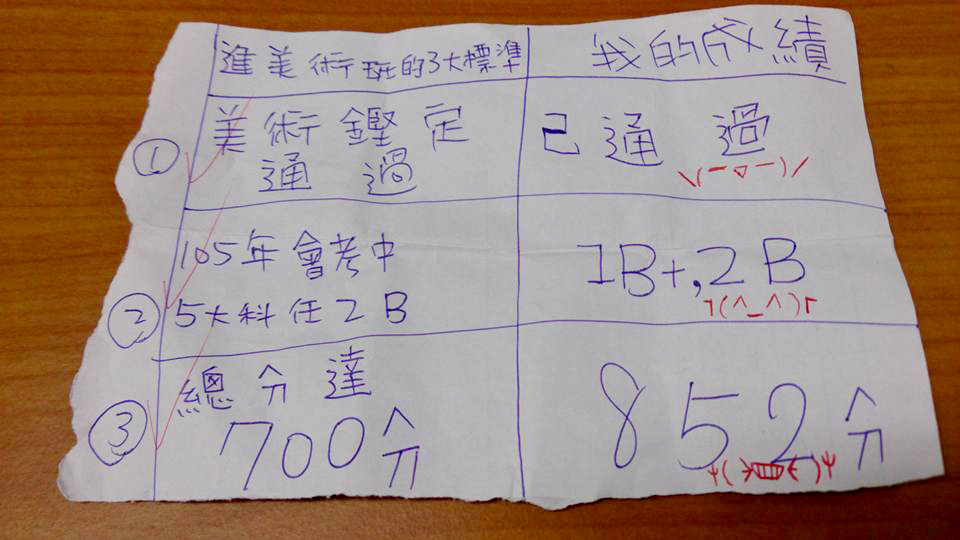 進美術班的3大標準
我的成績
① 美術鑑定
通過
已通過
\(ー▽ー)/
② 105年會考中
5大科任2B
1B+,2B
┐(^_^)┌
③ 總分達
700分
852分